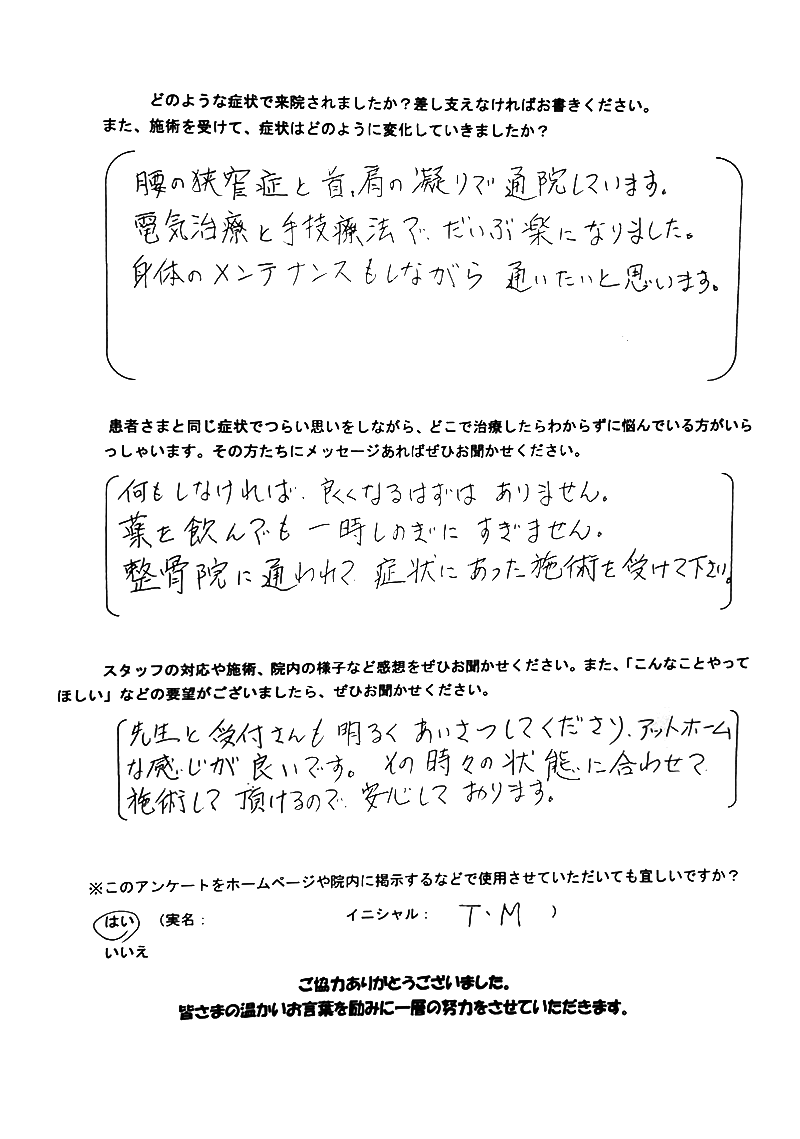 どのような症状で来院されましたか？差し支えなければお書きください。
また、施術を受けて、症状はどのように変化していきましたか？
腰の狭窄症と首、肩の凝りで通院しています。
電気治療と手技療法で、だいぶ楽になりました。
身体のメンテナンスもしながら 通いたいと思います。
患者さまと同じ症状でつらい思いをしながら、どこで治療したらわからずに悩んでいる方がいら
っしゃいます。その方たちにメッセージあればぜひお聞かせください。
何もしなければ、良くなるはずは ありません。
薬を飲んでも 一時しのぎに すぎません。
整骨院に通われて、症状にあった施術を受けて下さい。
スタッフの対応や施術、院内の様子など感想をぜひお聞かせください。また、「こんなことやって
ほしい」などの要望がございましたら、ぜひお聞かせください。
先生と受付さんも明るくあいさつしてくださり、アットホーム
な感じが良いです。その時々の状態に合わせて
施術して頂けるので、安心しております。
※このアンケートをホームページや院内に掲示するなどで使用させていただいても宜しいですか？
はい （実名： イニシャル： T・M ）
いいえ
ご協力ありがとうございました。
皆さまの温かいお言葉を励みに一層の努力をさせていただきます。